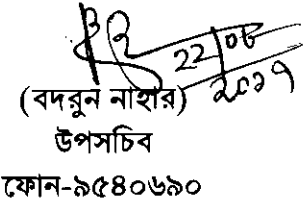 22/08
2017
(বদরুন নাহার)
উপসচিব
ফোন-৯৫৪০৬৯০